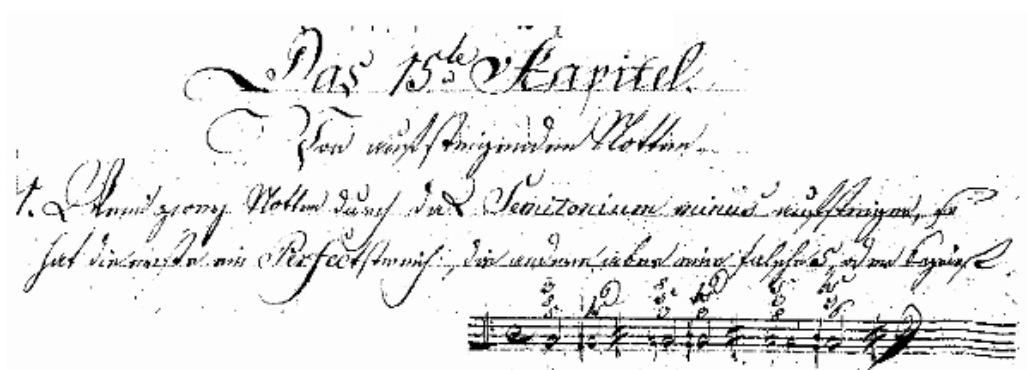 Das 15te Kapitel.
Von auffsteigenden Notten.
1. Wenn zwey Notten durch das Semitonium minus auffsteigen, so
hat die erste ein Perfect, die andere aber eine falsche 5, oder